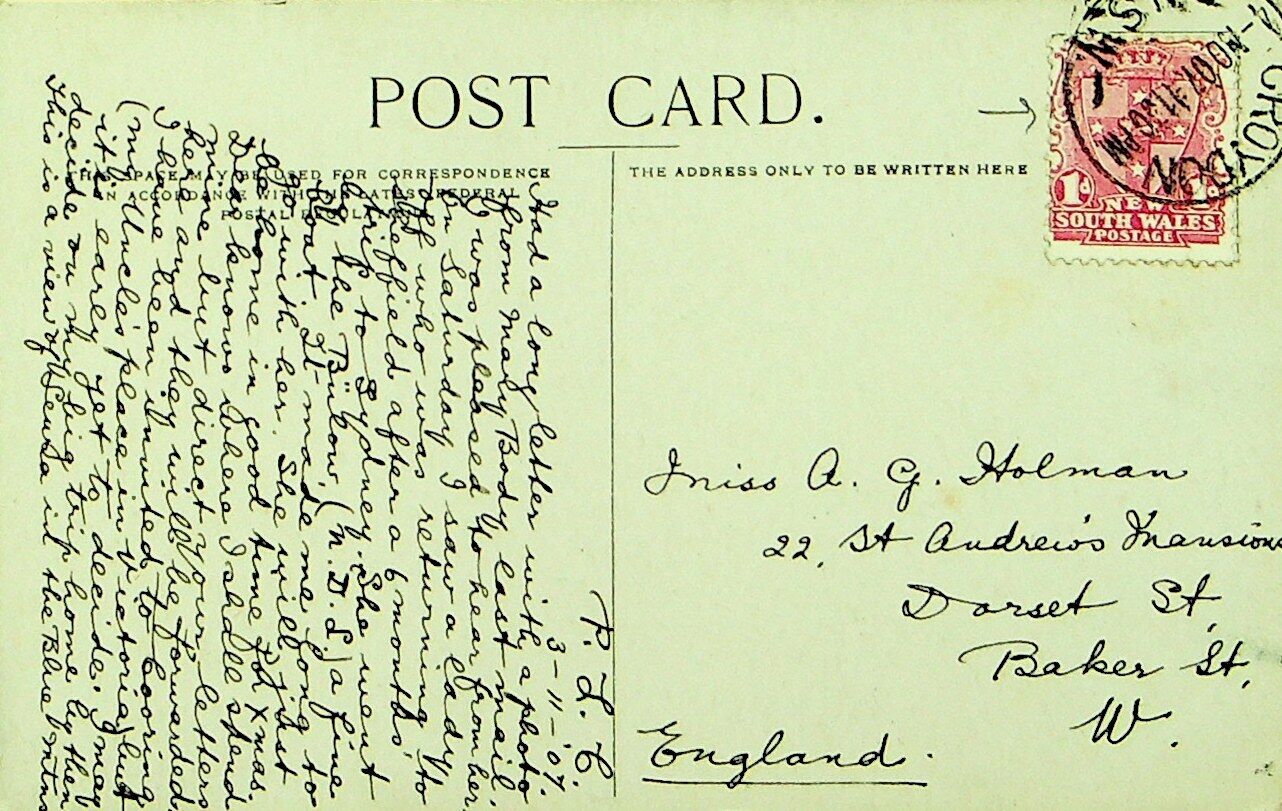 POST CARD.
THIS SPACE MAY BE USED FOR CORRESPONDENCE
IN ACCORDANCE WITH FEDERAL
POSTAL REGULATIONS
THE ADDRESS ONLY TO BE WRITTEN HERE
CROYDON
N.S.W
1d
NEW
SOUTH WALES
POSTAGE
P. L. C.
3-11-'07.
Had a long letter with a photo.
from Mary Body last mail.
I was pleased to hear from her.
On Saturday I saw a lady
off who was returning to
Sheffield after a 6 months'
trip to Sydney. She went
by the Bülow (N.D.L.) a fine
boat. It made me long to
go with her. She will just
be home in good time for Xmas.
Dear knows where I shall spend
mine but direct your letters
here and they will be forwarded.
I have been invited to Cooring
(my Uncle's place in Victoria) but
it is early yet to decide. I may
decide on my big trip home by then
This is a view of Leura in the Blue Mtns
Miss A. G. Holman
22, St Andrew's Mansions
Dorset St,
Baker St,
W.
England.